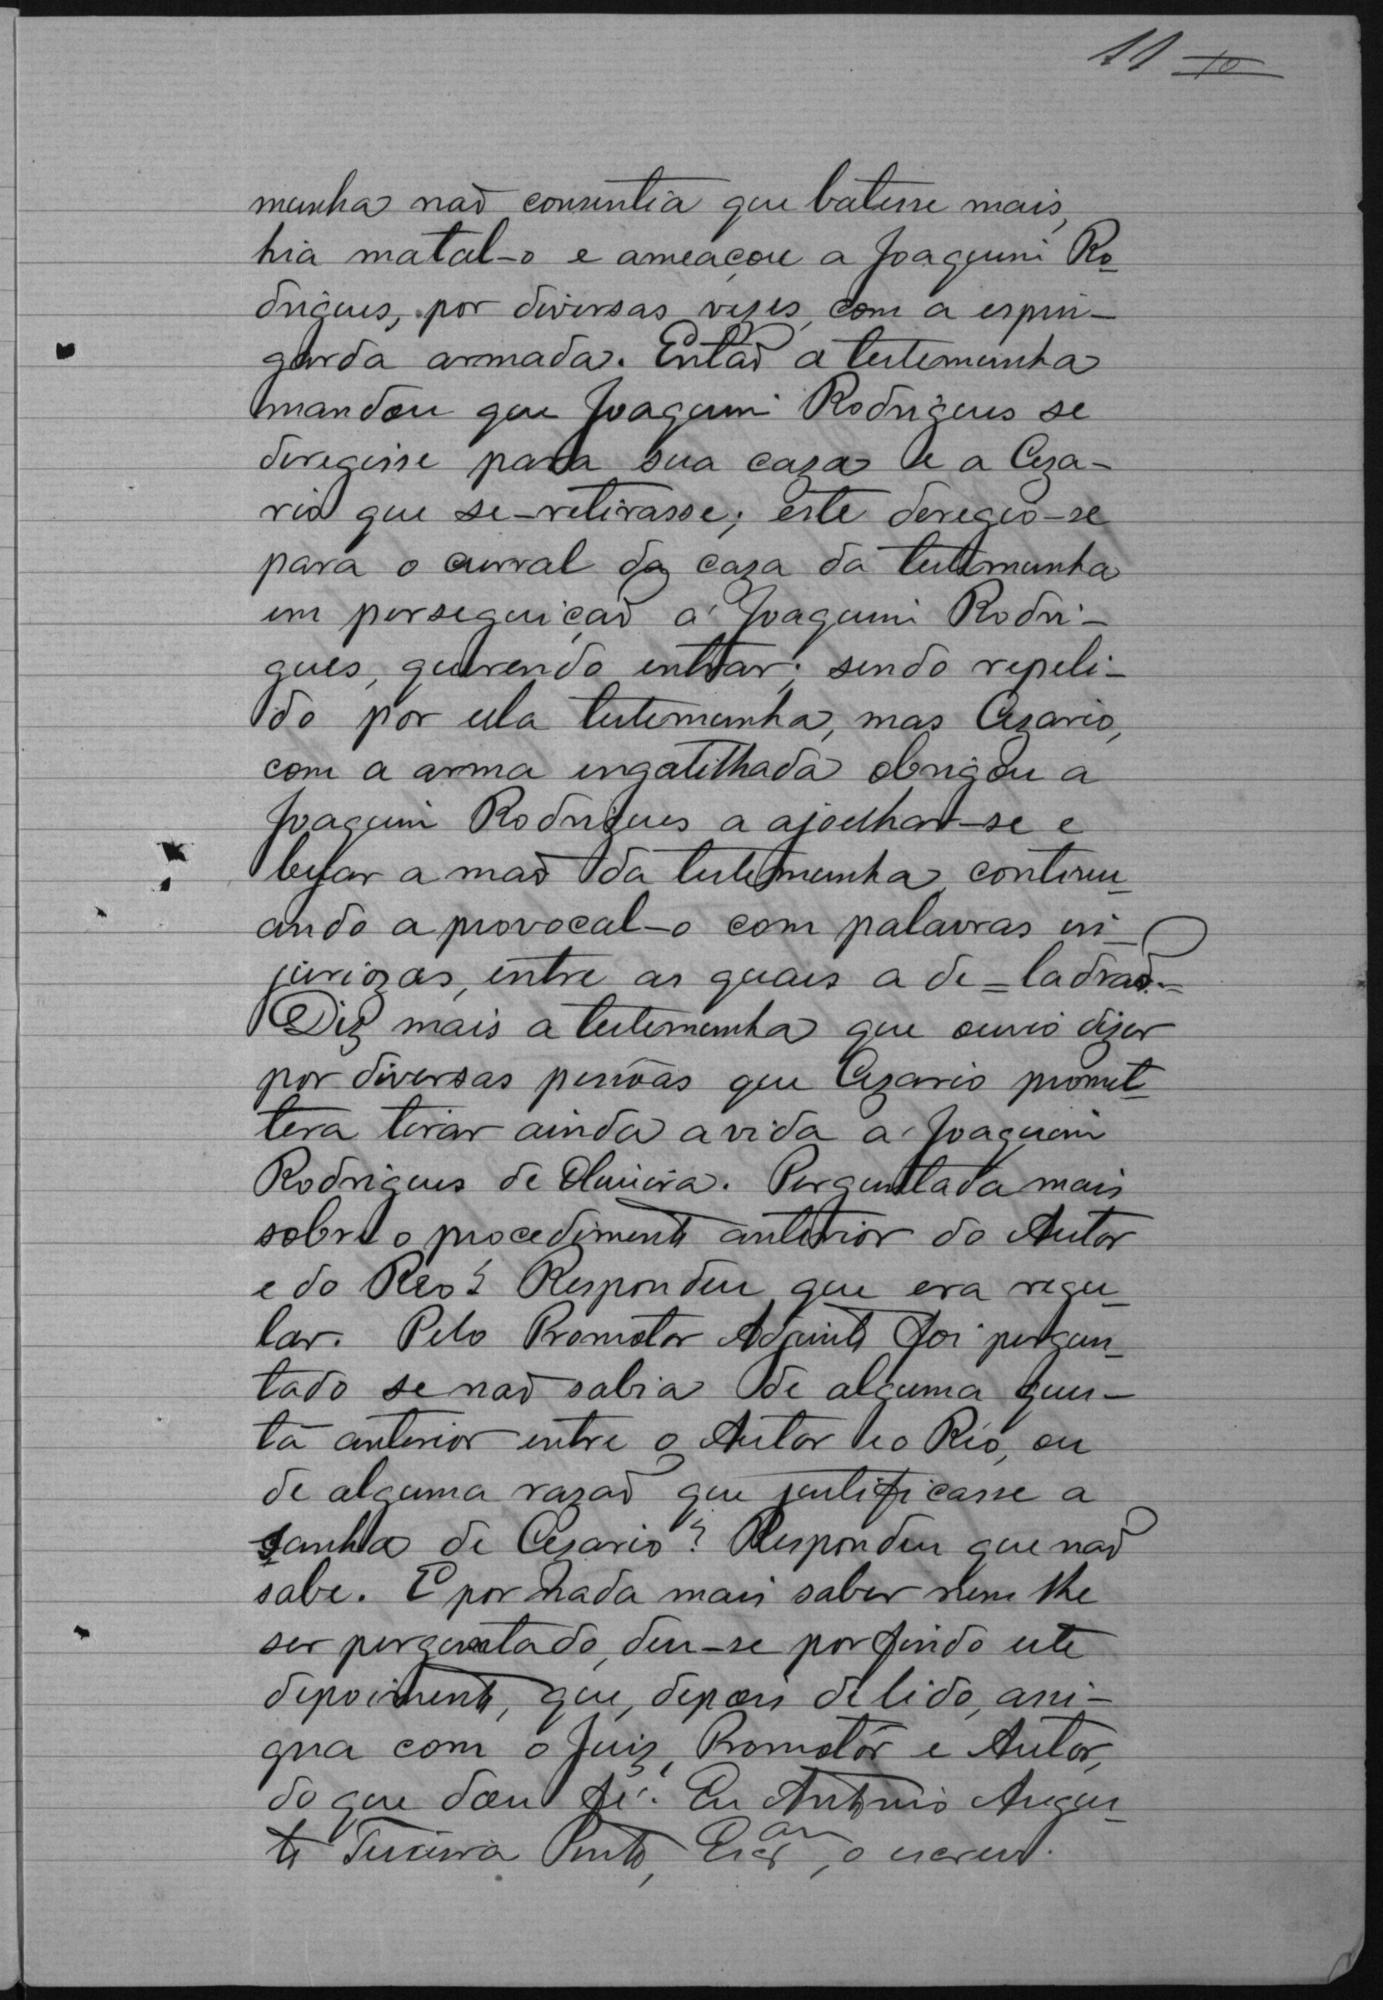 11 10
munha naõ consentia que batesse mais,
hia matal-o e ameaçou a Joaquim Ro-
drigues, por diversas vezes, com a espin-
garda armada. Entaõ a testemunha
mandou que Joaquim Rodrigues se
deregisse para sua caza e a Ceza-
rio que se-retirasse; este deregio-se
para o curral da caza da testemunha
em perseguiçaõ a' Joaquim Rodri-
gues, querendo entrar; sendo repeli-
do por ella testemunha, mas Cezario,
com a arma engatilhada obrigou a
Joaquim Rodrigues a ajoelhar-se e
bejar a maõ da testemunha, continu-
ando a provocal-o com palavras in-
juriozas, entre as quais a de = ladraõ. =
Diz mais a testemunha que ouvio dizer
por diversas pessôas que Cezario promet-
tera tirar ainda a vida a' Joaquim
Rodrigues de Oliveira. Perguntada mais
sobre o procedimento anterior do Autor
e do Reo? Respondeu que era regu-
lar. Pelo Promotor Adjunto foi pergun-
tado se naõ sabia de alguma ques-
tã anterior entre o Autor e o Réo, ou
de alguma razaõ que justificasse a
sanha de Cezario? Respondeu que naõ
sabe. E por nada mais saber nem lhe
ser perguntado, deu-se por findo este
depoimento, que, depois de lido, assi-
gna com o Juiz, Promotôr e Autor,
do que dou fé. Eu Antonio Augus-
to Teixeira Pinto, Escr.am, o escrevi.